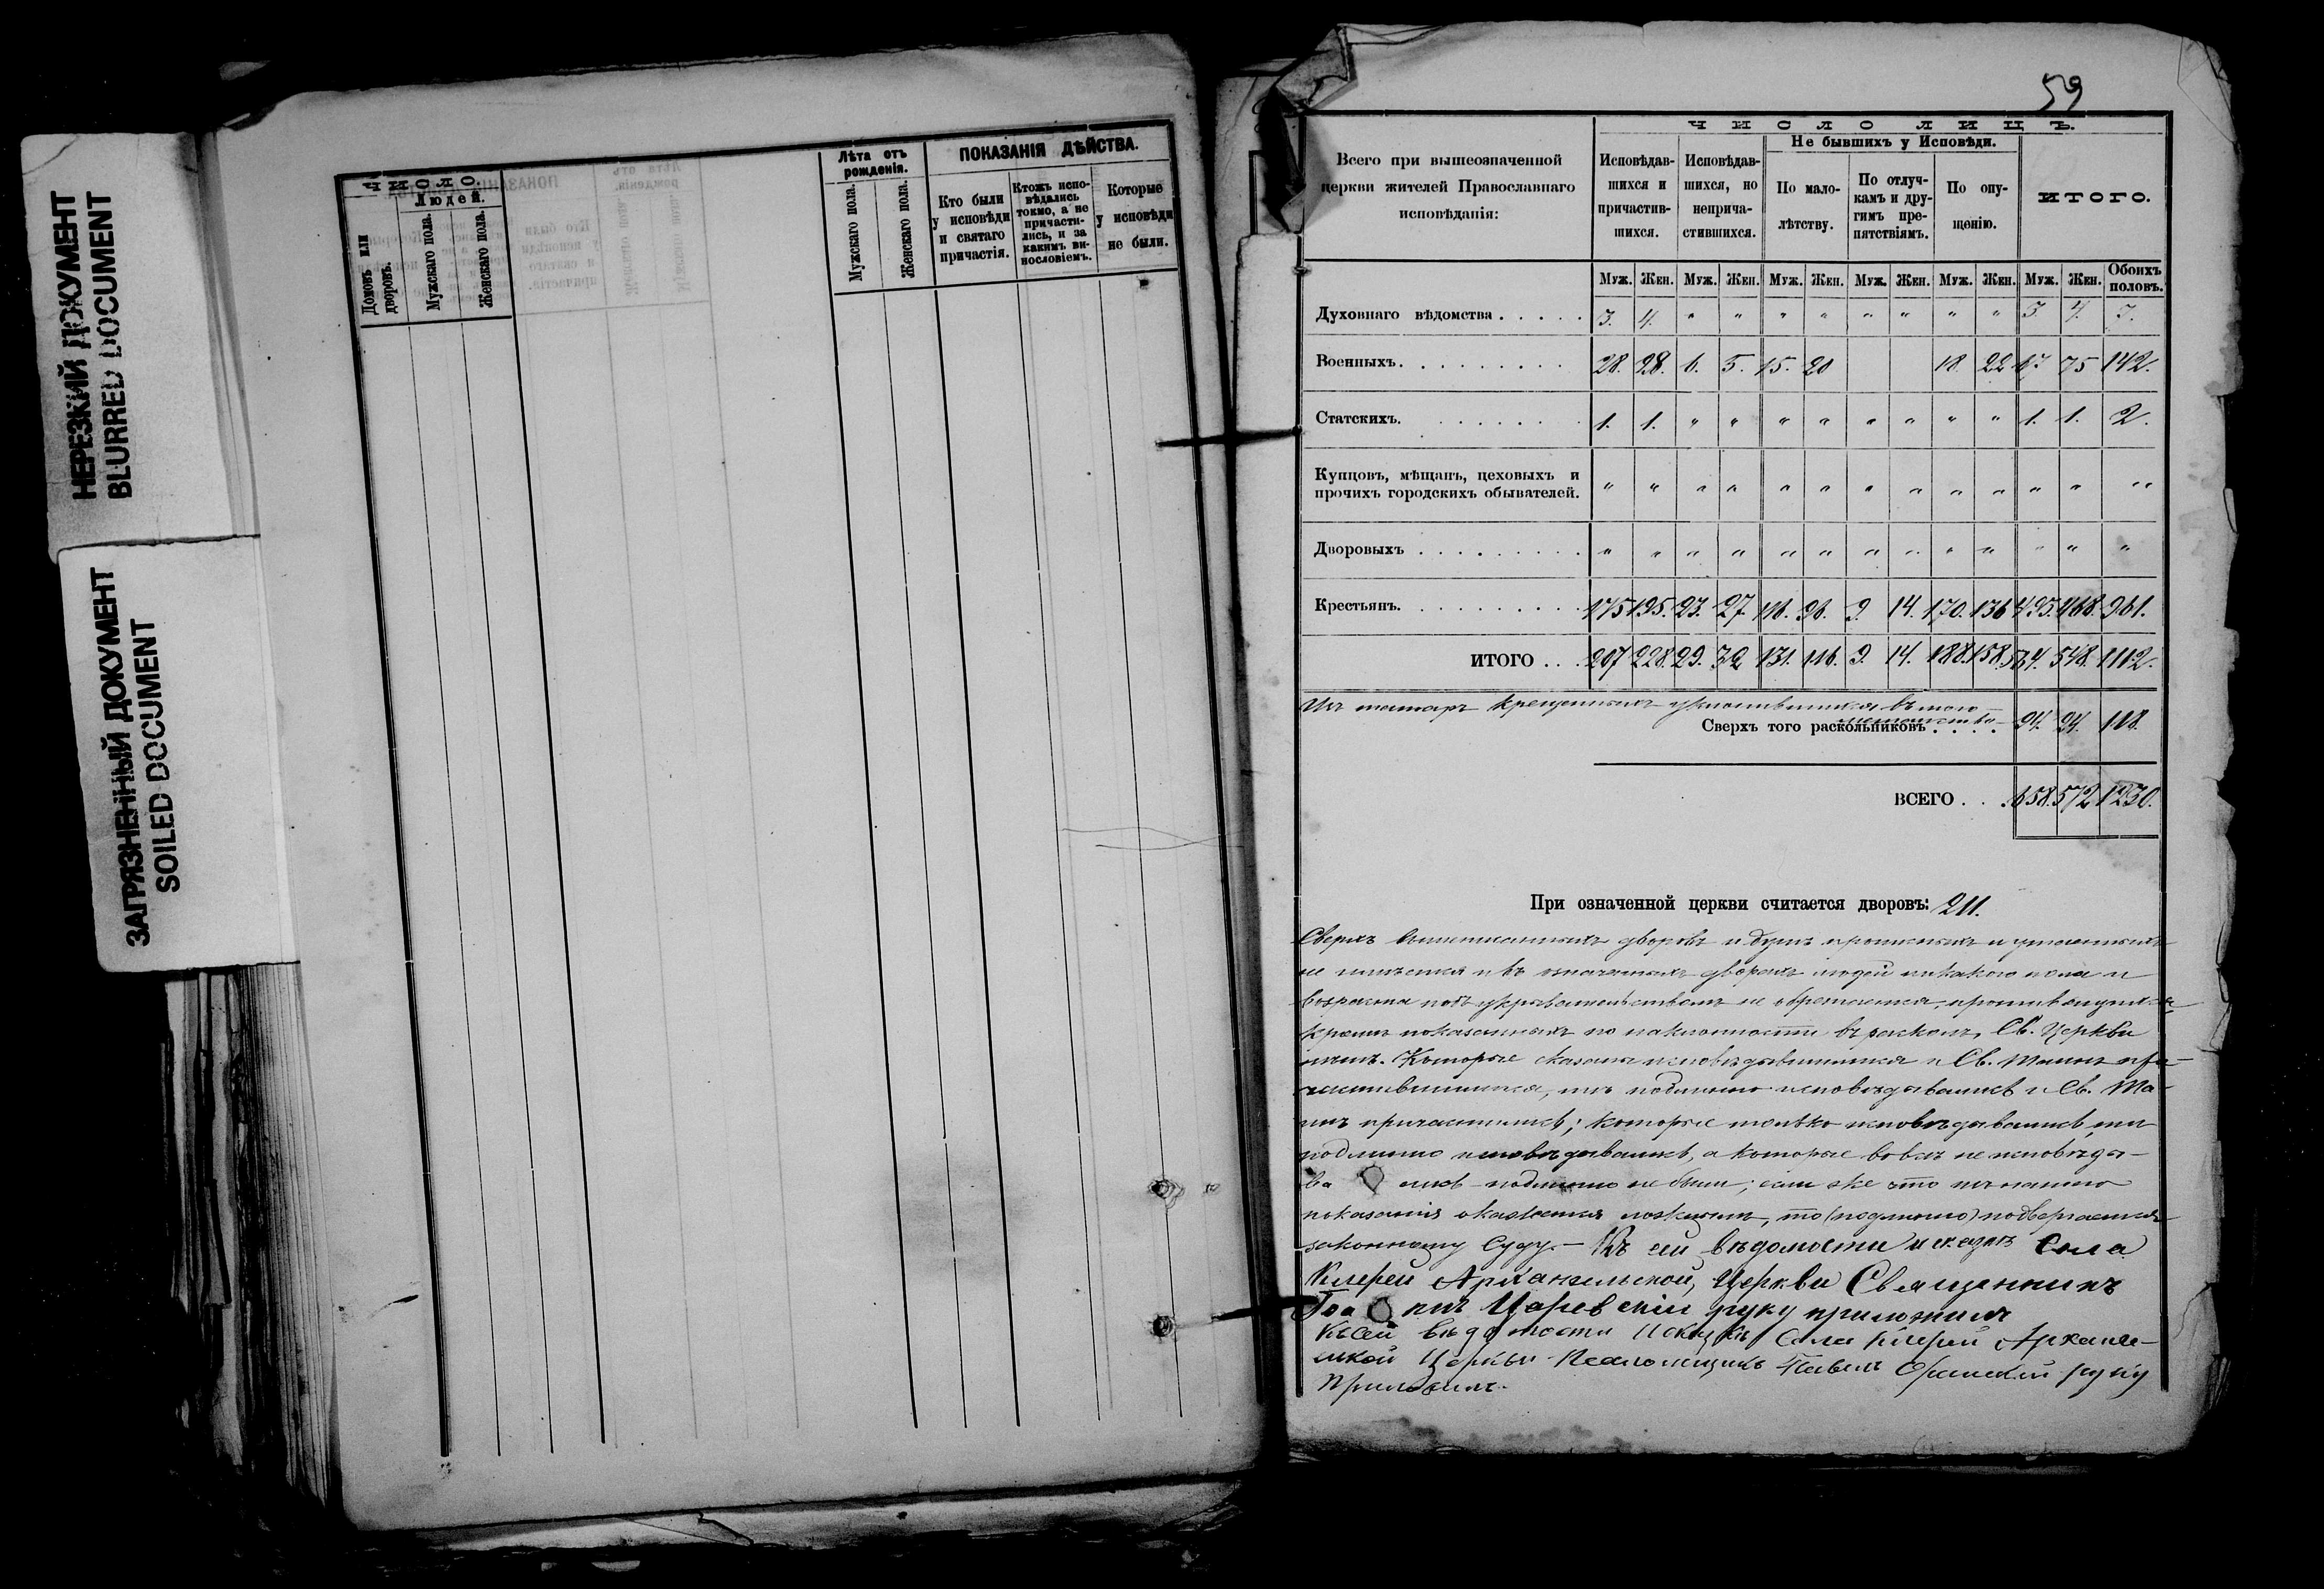 НЕРЕЗКИЙ ДОКУМЕНТ
BLURRED DOCUMENT
ЗАГРЯЗНЕННЫЙ ДОКУМЕНТ
SOILED DOCUMENT
ЧИСЛО.
Людей.
Домовъ или дворовъ.
Мужскаго пола.
Женскаго пола.
Лѣта отъ рожденія.
Мужскаго пола.
Женскаго пола.
ПОКАЗАНІЯ ДѢЙСТВА.
Кто были
у исповѣди
и святаго
причастія.
Ктожъ испо-
вѣдались
токмо, а не
причасти-
лись, и за
какимъ ви-
нословіемъ.
Которые
у исповѣди
не были.
59
Всего при вышеозначенной
церкви жителей Православнаго
исповѣданія:
ЧИСЛО ЛИЦЪ.
Исповѣдав-
шихся и
причастив-
шихся.
Исповѣдав-
шихся, но
неприча-
стившихся.
Не бывшихъ у Исповѣди.
По мало-
лѣтству.
По отлуч-
камъ и дру-
гимъ пре-
пятствіямъ.
По опу-
щенію.
ИТОГО.
Муж. Жен. Муж. Жен. Муж. Жен. Муж. Жен. Муж. Жен. Муж. Жен. Обоихъ половъ.
Духовнаго вѣдомства . . . . . 3. 4. " " " " " " " " 3. 4. 7.
Военныхъ. . . . . . . . . 28. 28. 6. 5. 15. 20 18. 22 67. 75 142.
Статскихъ. . . . . . . . 1. 1. " " " " " " " " 1. 1. 2.
Купцовъ, мѣщанъ, цеховыхъ и
прочихъ городскихъ обывателей. " " " " " " " " " " " " "
Дворовыхъ . . . . . . . . . " " " " " " " " " " " " "
Крестьянъ. . . . . . . . . 175 195. 23. 27. 116. 96. 9. 14. 170. 136 493. 468. 961.
ИТОГО . . . 207 228. 29. 32 131. 116. 9. 14. 188. 158. 564. 548. 1112.
Изъ татаръ крещенныхъ уклонившихся въ
Сверхъ того раскольниковъ . . . . 94. 24. 118.
ВСЕГО . . . 658. 572 1230.
При означенной церкви считается дворовъ: 211.
Сверхъ вышеписанныхъ дворовъ и душъ прописныхъ и утаенныхъ
не имѣется и въ означенныхъ дворахъ людей никакого пола и
возраста подъ укрывательствомъ не обретается,
кромѣ показанныхъ по наклонности въ расколъ, Св. Церкви
нѣтъ. Которые сказаны исповѣдывшимися и Св. Таинъ при-
частившимися, тѣ подлинно исповѣдывались и Св. Та-
инъ причастились; которые только исповѣдывались, тѣ
подлинно исповѣдывались, а которые вовсе не исповѣды-
ва лись – подлинно не были; если же что изъ нашего
показанія окажется ложнымъ, то (подлежимъ) подвергаемся
законному Суду. – Къ сей вѣдомости и сказкѣ Села
Архангельской Церкви Священникъ
Царевскій руку приложилъ
Къ сей вѣдомости и сказкѣ Села Архангель-
ской Церкви Псаломщикъ Павелъ руку
приложилъ.